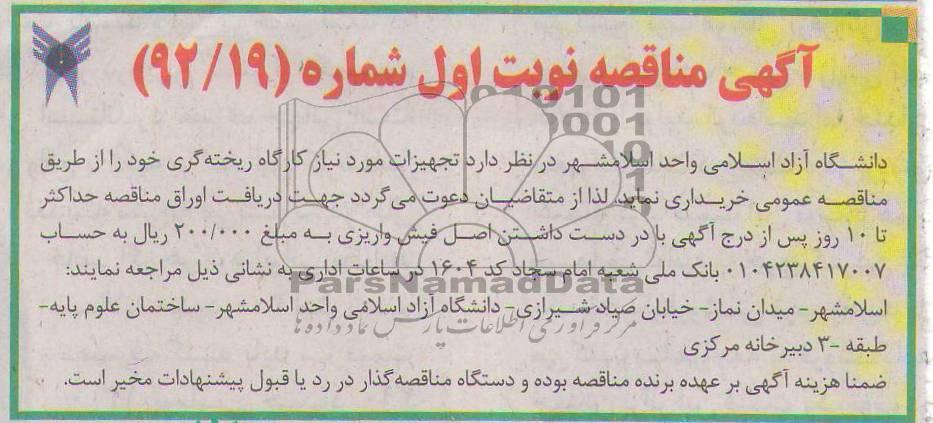 آگهی مناقصه نوبت اول شماره (۹۲/۱۹)
دانشگاه آزاد اسلامی واحد اسلامشهر در نظر دارد تجهیزات مورد نیاز کارگاه ریخته‌گری خود را از طریق
مناقصه عمومی خریداری نماید، لذا از متقاضیان دعوت می‌گردد جهت دریافت اوراق مناقصه حداکثر
تا ۱۰ روز پس از درج آگهی با در دست داشتن اصل فیش واریزی به مبلغ ۲۰۰/۰۰۰ ریال به حساب
۰۱۰۴۲۳۸۴۱۷۰۰۷ بانک ملی شعبه امام سجاد کد ۱۶۰۴ در ساعات اداری به نشانی ذیل مراجعه نمایند:
ParsNamadData
اسلامشهر- میدان نماز- خیابان صیاد شیرازی- دانشگاه آزاد اسلامی واحد اسلامشهر- ساختمان علوم پایه-
مرکز فرآوری اطلاعات پارس نماد داده ها
طبقه ۳- دبیرخانه مرکزی
ضمنا هزینه آگهی بر عهده برنده مناقصه بوده و دستگاه مناقصه‌گذار در رد یا قبول پیشنهادات مخیر است.